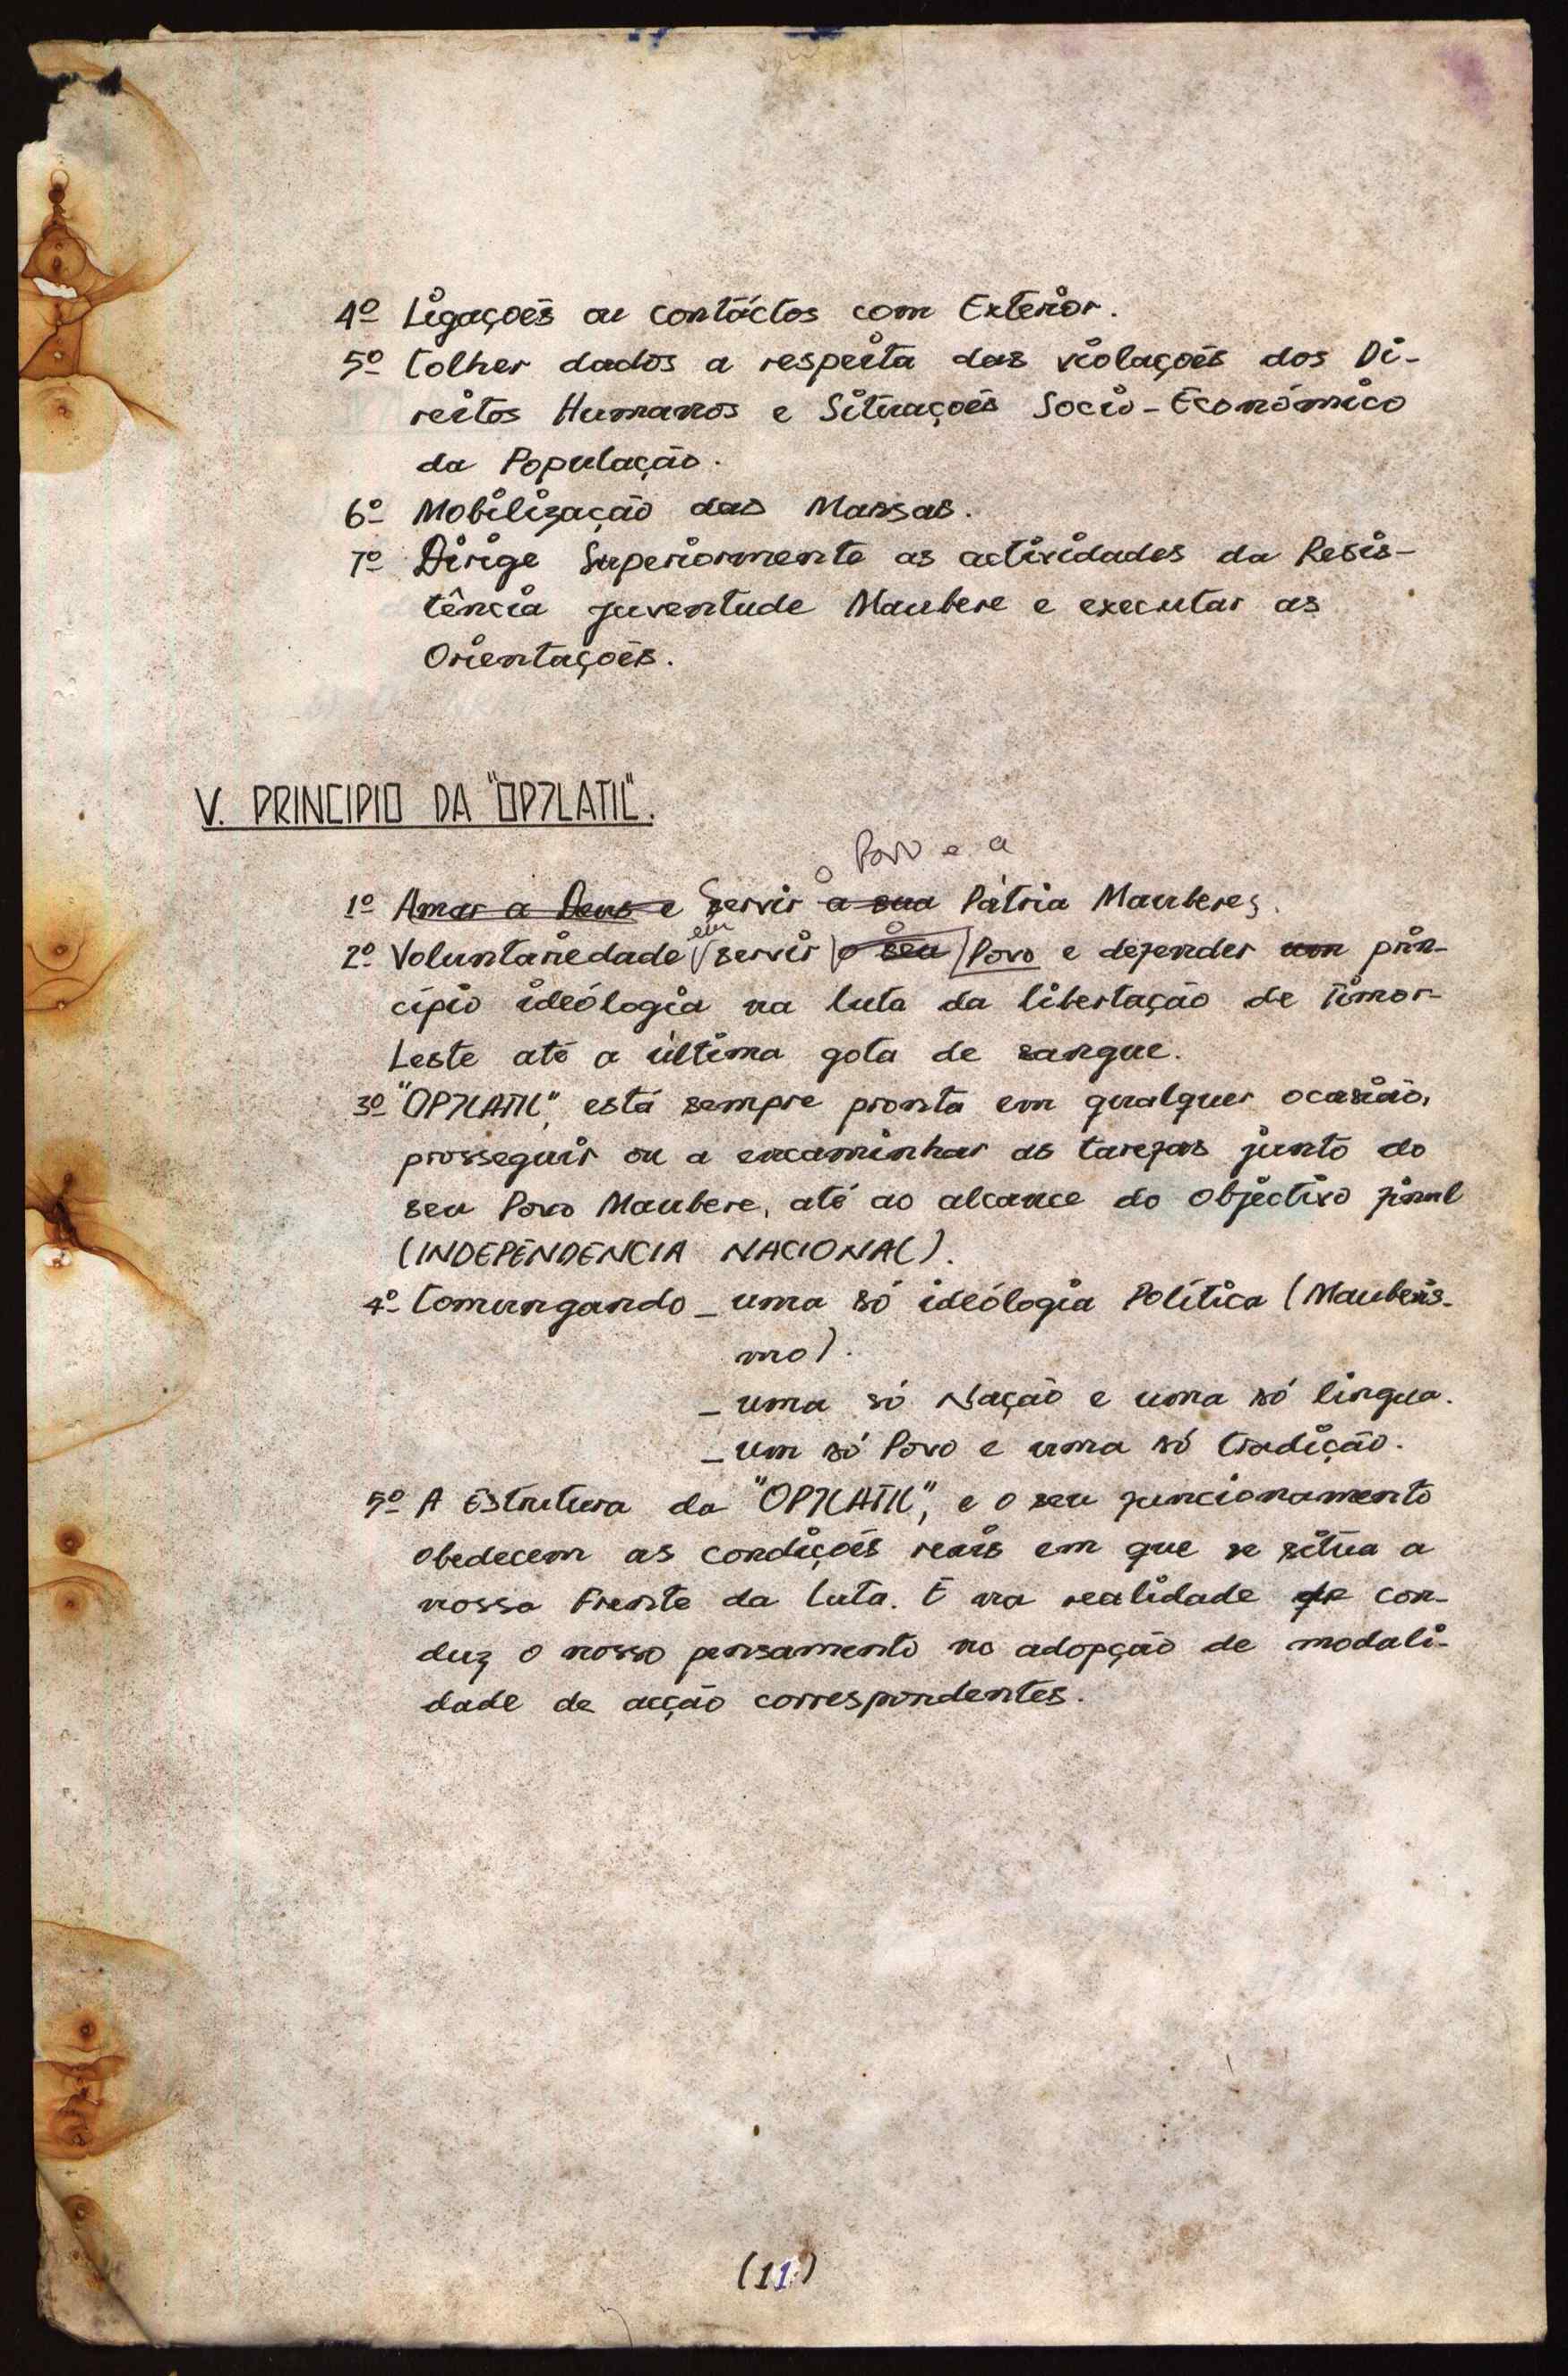 4º Ligações ou contáctos com Exterior.
5º Colher dados a respeita das violações dos Di-
reitos Humanos e Situações Socio-Económico
da População.
6º Mobilização das Massas.
7º Dirige Superiormente as actividades da Resis-
tência juventude Maubere e executar as
Orientações.
V. PRINCIPIO DA "OPJLATIL".
o Povo e a
1º Amar a Deus e Servir a sua Pátria Maubere,
em
2º Voluntariedade servir o seu Povo e defender um prin-
cípio ideólogia na luta da libertação de Timor-
Leste até a última gota de sangue.
3º "OPJLATIL", está sempre pronta em qualquer ocasião,
prosseguir ou a encaminhar as tarefas junto do
seu Povo Maubere, até ao alcance do objectivo final
(INDEPENDENCIA NACIONAL).
4º Comungando _ uma só ideólogia Política (Mauberis-
mo).
_ uma só Nação e uma só lingua.
_ um só Povo e uma só tradição.
5º A Estrutura da "OPJLATIL", e o seu funcionamento
obedecem as condições reais em que se situa a
nossa Frente da Luta. E na realidade con-
duz o nosso pensamento na adopção de modali-
dade de acção correspondentes.
(11)